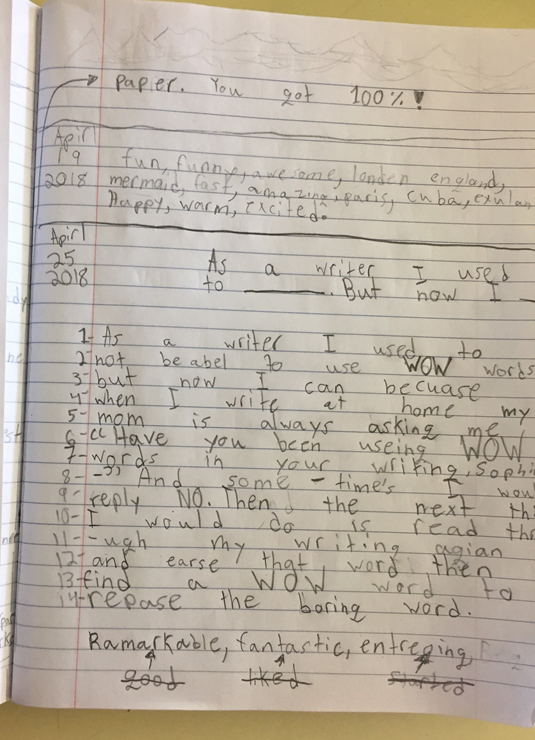 paper. You got 100%!
Apirl
19
2018
fun, funny, awesome, londen england,
mermaid, fast, amazing, paris, cuba,
Happy, warm, excited.
Apirl
25
2018
As a writer I used
to ______. But now I _
1- As a writer I used to
2- not be abel to use WOW words
3- but now I can becuase
4- when I write at home my
5- mom is always asking me
6- "Have you been useing WOW
7- words in your writing,
8- -" And some-time's I
9- reply NO. Then the next
10- I would do is read
11- -ugh my writing agian
12- and earse that word then
13- find a WOW word to
14- repase the boring word.
Ramarkable, fantastic, entreging,
good liked started